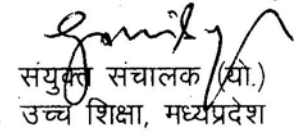 संयुक्त संचालक (यो.)
उच्च शिक्षा, मध्यप्रदेश